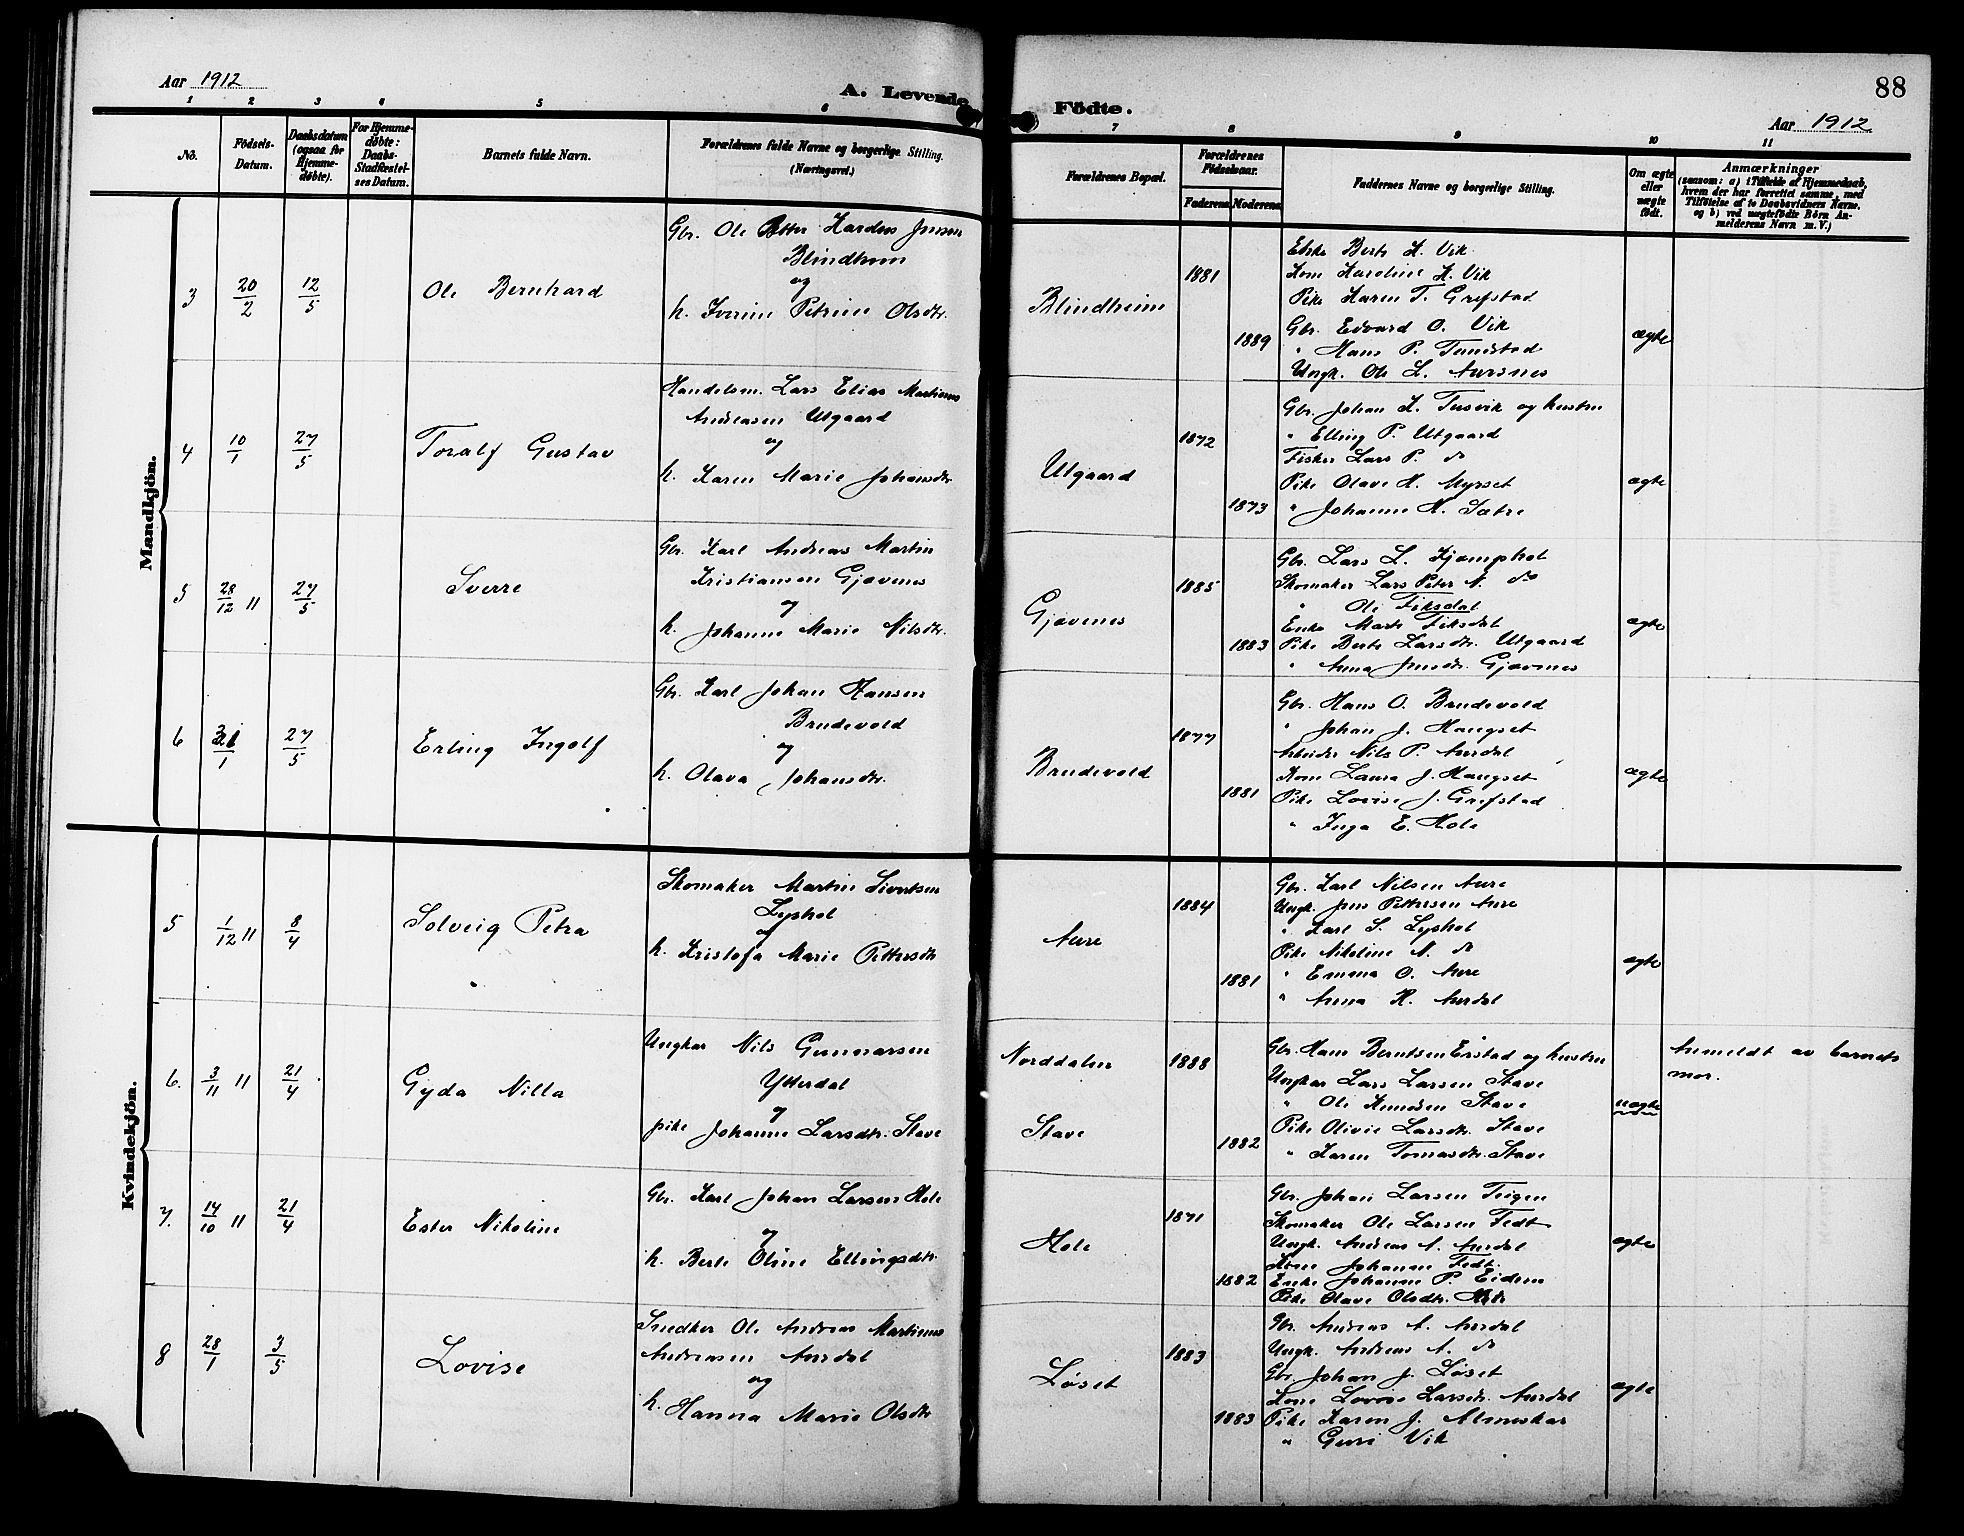 Aar 1912
A. Levende Födte.
88
Aar 1912
1 2 3 4 5 6 7 8 9 10 11
No.
Födsels-
Datum.
Daabsdatum
(ogsaa for
Hjemme-
döbte).
For Hjemme-
døbte:
Daabs-
Stadfæstel-
ses Datum.
Barnets fulde Navn.
Forældrenes fulde Navne og borgerlige Stilling.
(Næringsvei.)
Forældrenes Bopæl.
Forældrenes
Födselsaar.
Faderens
Moderens
Faddernes Navne og borgerlige Stilling.
Om ægte
eller
uægte
født.
Anmærkninger
(saasom: a) i Tilfælde af Hjemmedaab,
hvem der har forrettet samme, med
Tilföielse af to Daabsvidners Navne.
og b) ved uægtefødte Börn An-
melderens Navn m. V.)
Mandkjön.
3
20/2
12/5
Ole Bernhard
Gbr. Ole Petter Kardus Jensen
Blindheim
og
h. Iverine Petrine Olsdtr.
Blindheim
1881
1889
Enke Berte K. Vik
Kone Karoline K. Vik
Pike Karen T. Grefstad
Gbr. Edvard O. Vik
" Hans P. Tunstad
Ungk. Ole L. Aursnes
ægte
4
10/1
27/5
Toralf Gustav
Handelsm. Lars Elias Martinus
Andreasen Utgaard
og
h. Karen Marie Johansdtr.
Utgaard
1872
1873
Gbr. Johan K. Tusvik og hustru
" Elling P. Utgaard
Fisker Lars P. do
Pike Olave K. Myrset
" Johanne K. Sætre
ægte
5
28/12 11
27/5
Sverre
Gbr. Karl Andreas Martin
Kristiansen Gjævenes
og
h. Johanne Marie Nilsdtr.
Gjævenes
1885
1883
Gbr. Lars L. Kjemphol
Skomaker Lars Peter N. do
" Ole Fiksdal
Enke Marte Fiksdal
Pike Berte Larsdtr. Utgaard
" Anna Jensdtr. Gjævenes
ægte
6
31/1
27/5
Erling Ingolf
Gbr. Karl Johan Hansen
Brudevold
og
h. Olava Johansdtr.
Brudevold
1877
1881
Gbr. Hans O. Brudevold
" Johan J. Haugset
Arbeider Nils P. Aurdal
Kone Laura J. Haugset
Pike Lovise J. Grefstad
" Inga E. Hole
ægte
Kvindekjön.
5
1/12 11
8/4
Solveig Petra
Skomaker Martin Sivertsen
Lyshol
og
h. Kristofa Marie Pettersdtr
Aure
1884
1881
Gbr. Karl Nilsen Aure
Ungk. Jens Pettersen Aure
" Karl S. Lyshol
Pike Nikoline N. do
" Emma O. Aure
" Anna K. Aurdal
ægte
6.
3/11 11
21/4
Gyda Nilla
Ungkar Nils Gunnarsen
Ytterdal
og
pike Johanne Larsdtr. Stave
Norddalen
Stave
1888
1882
Gbr. Hans Berntsen Erstad og hustru
Ungkar Lars Larsen Stave
" Ole Knudsen Stave
Pike Olivie Larsdtr. Stave
" Karen Tomasdtr. Stave
uægte
Anmeldt av barnets
mor.
7.
14/10 11
21/4
Ester Nikoline
Gbr. Karl Johan Larsen Hole
og
h. Berte Oline Ellingsdtr.
Hole
1871
1882
Gbr. Johan Larsen Teigen
Skomaker Ole Larsen Fedt
Ungk. Andreas A. Aurdal
Kone Johanne Fedt.
Enke Johanne P. Eidem
Pike Olave Olsdtr. Hole
ægte
8
28/1
3/5
Lovise
Snedker Ole Andreas Martinus
Andreasen Aurdal
og
h. Hanna Marie Olsdtr
Løset
1883
1883
Gbr. Andreas A. Aurdal
Ungk. Andreas A. do
Gbr. Johan J. Løset
Kone Lovise Larsdtr. Aurdal
Pike Karen J. Almeskar
" Guri Vik
ægte